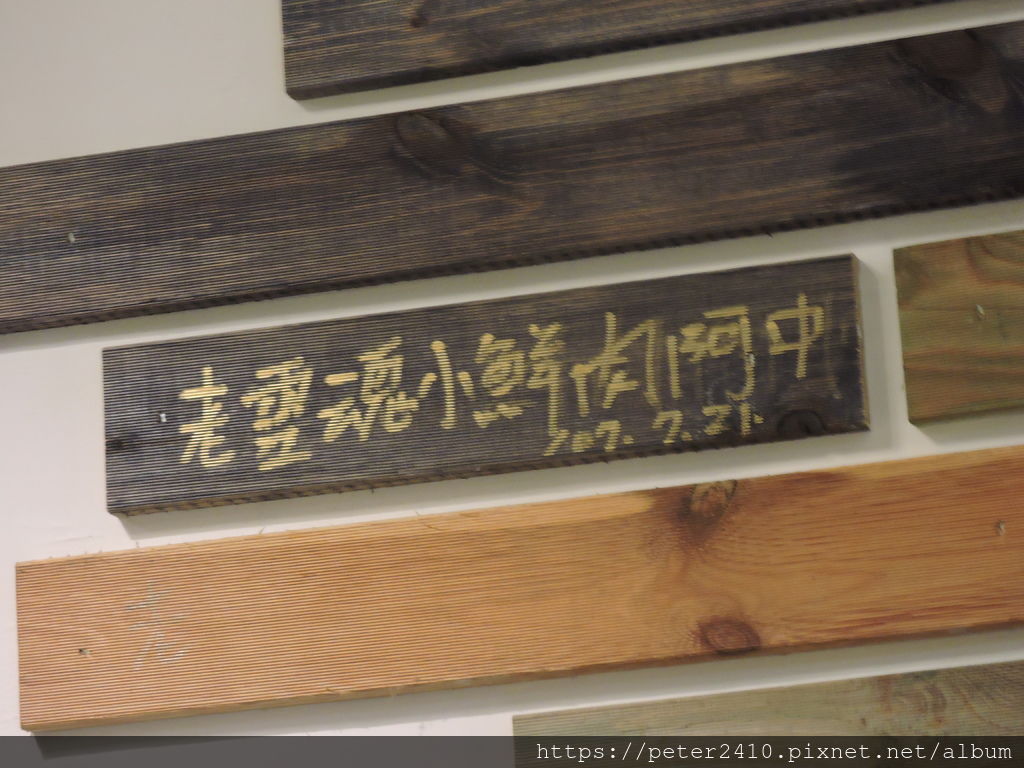 老靈魂小鮮肉阿中
207.7.21.
老
https://peter2410.pixnet.net/album